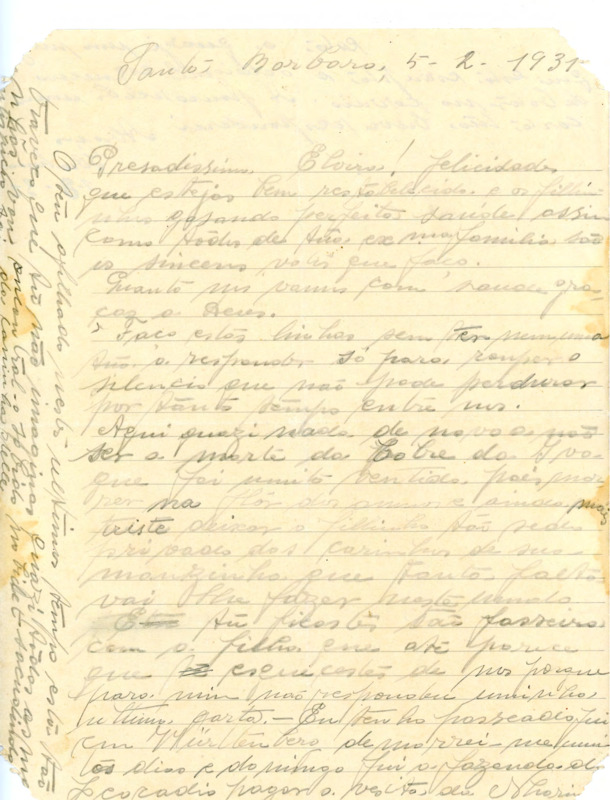 Santa Barbara, 5-2-1931
Presadissima Elvira! felicidades
que estejas bem restabelecida e os filhi-
nhos gosando perfeita saude assim
como todos de tua exma familia são
os sinceros votos que faço.
Quanto nos vamos com saude gra-
ças a Deus.
Faço estas linhas sem ter nem uma
tua a responder só para romper o
silencio que não pode perdurar
por tanto tempo entre nos.
Aqui quazi nada de novo a não
ser a morte da pobre da
que foi muito sentida, pois mor-
rer na flôr dos annos e ainda mais
triste deixar o filhinho tão sedo
privado dos carinhos de sua
mãezinha que tanta falta
vai lhe fazer neste mundo
Tu ficastes tão fasseira
com a filha que até parece
que esquecestes de nos porque
para mim não respondeu minha
ultima carta. — Eu tenho passeado, fui
em Württemberg demorrei-me uns
dias e domingo fui a fazenda do
Leocadio pagar a visita da
O teu afilhado nestes ultimos tempo está tão
travesso que tu não imaginas quazi todos os me